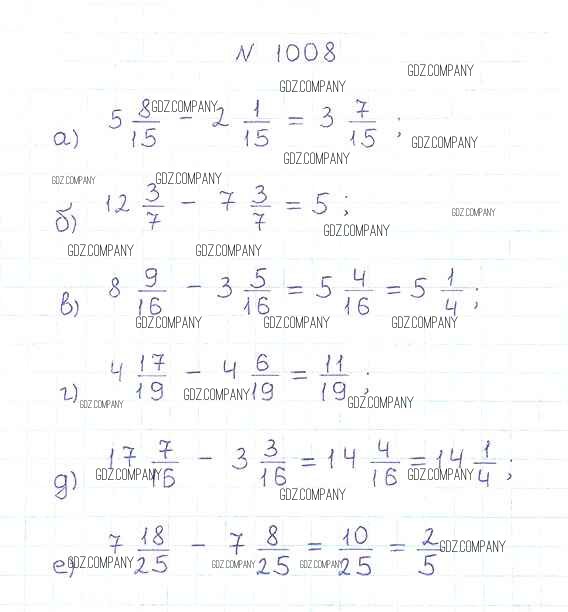 N 1008
GDZ.COMPANY
GDZ.COMPANY
а) 5 8/15 - 2 1/15 = 3 7/15 ;
GDZ.COMPANY
GDZ.COMPANY
GDZ.COMPANY
GDZ.COMPANY
GDZ.COMPANY
б) 12 3/7 - 7 3/7 = 5 ;
GDZ.COMPANY
GDZ.COMPANY
GDZ.COMPANY
GDZ.COMPANY
в) 8 9/16 - 3 5/16 = 5 4/16 = 5 1/4 ;
GDZ.COMPANY
GDZ.COMPANY
GDZ.COMPANY
г) 4 17/19 - 4 6/19 = 11/19 ;
GDZ.COMPANY
GDZ.COMPANY
GDZ.COMPANY
д) 17 7/16 - 3 3/16 = 14 4/16 = 14 1/4 ;
GDZ.COMPANY
GDZ.COMPANY
GDZ.COMPANY
е) 7 18/25 - 7 8/25 = 10/25 = 2/5
GDZ.COMPANY
GDZ.COMPANY
GDZ.COMPANY
GDZ.COMPANY